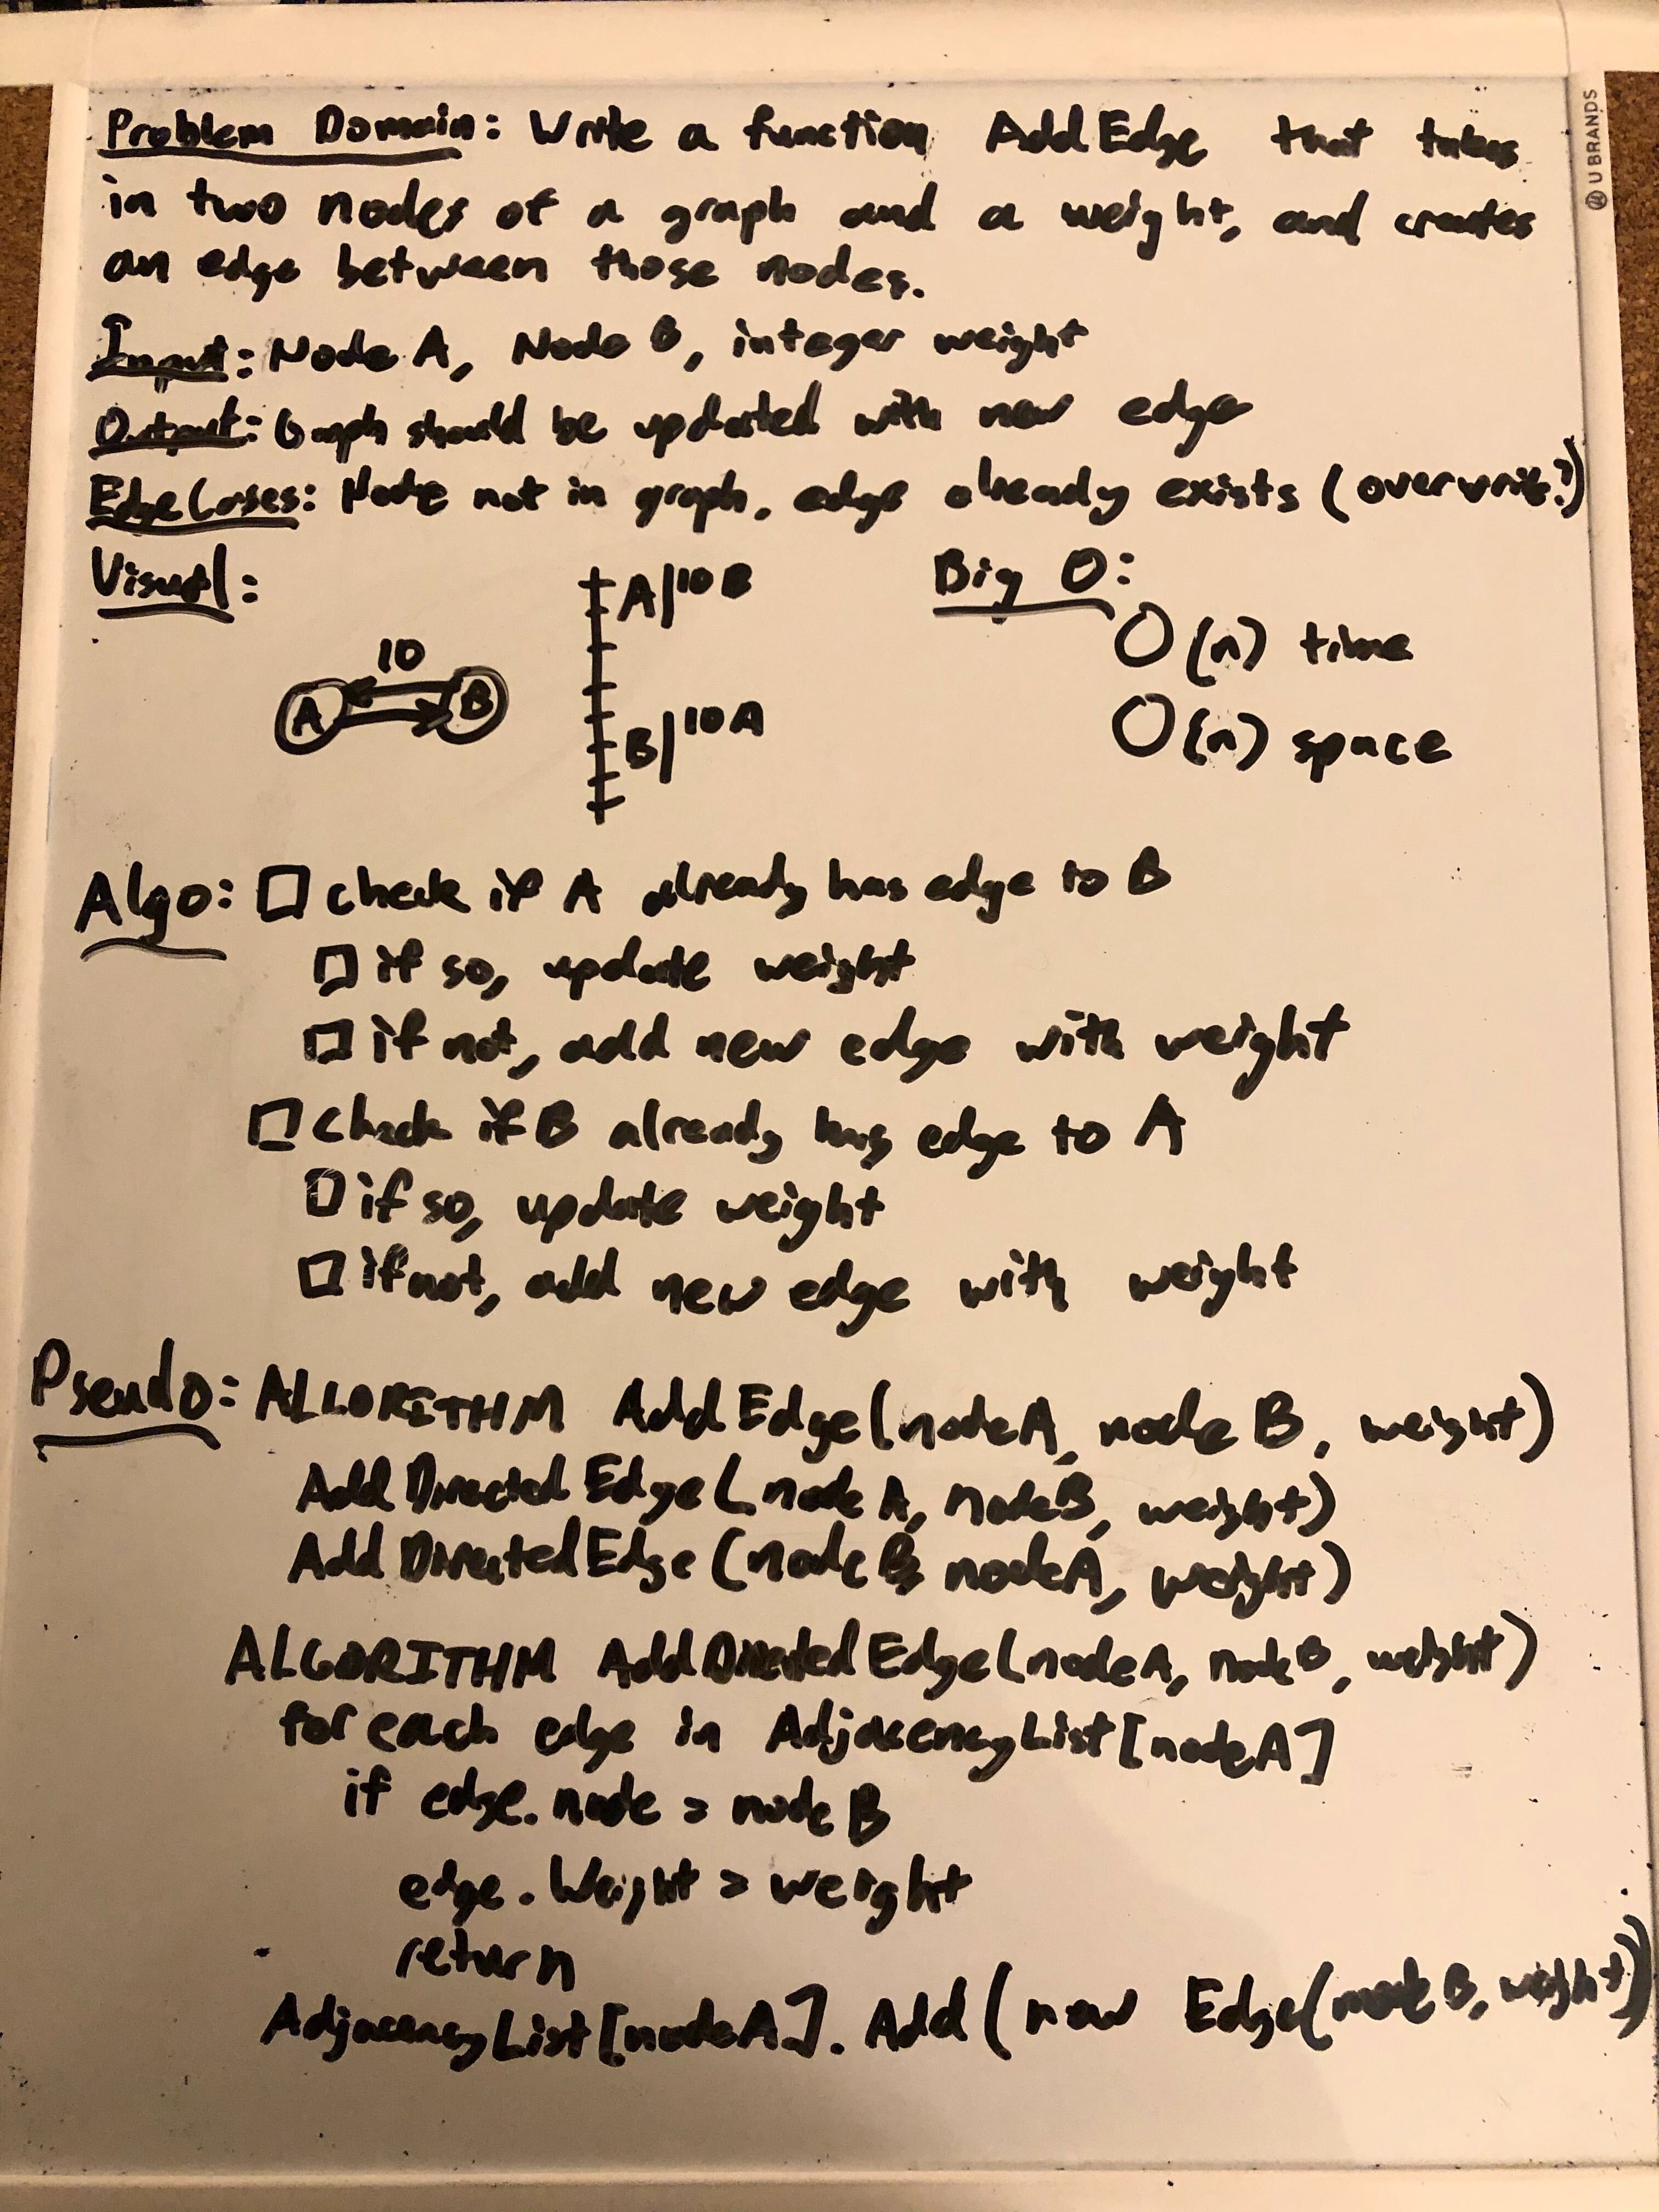 Problem Domain: Write a function AddEdge that takes
in two nodes of a graph and a weight, and creates
an edge between those nodes.
Input: Node A, Node B, integer weight
Output: Graph should be updated with new edge
Edge Cases: Node not in graph, edge already exists (overwrite?)
Visual:
10
A
B
A|10 B
B|10 A
Big O:
O(n) time
O(n) space
Algo: □ check if A already has edge to B
□ if so, update weight
□ if not, add new edge with weight
□ check if B already has edge to A
□ if so, update weight
□ if not, add new edge with weight
Pseudo: ALGORITHM AddEdge(nodeA, nodeB, weight)
AddDirectedEdge(nodeA, nodeB, weight)
AddDirectedEdge(nodeB, nodeA, weight)
ALGORITHM AddDirectedEdge(nodeA, nodeB, weight)
for each edge in AdjacencyList[nodeA]
if edge.node = nodeB
edge.Weight = weight
return
AdjacencyList[nodeA].Add(new Edge(nodeB, weight))
U BRANDS